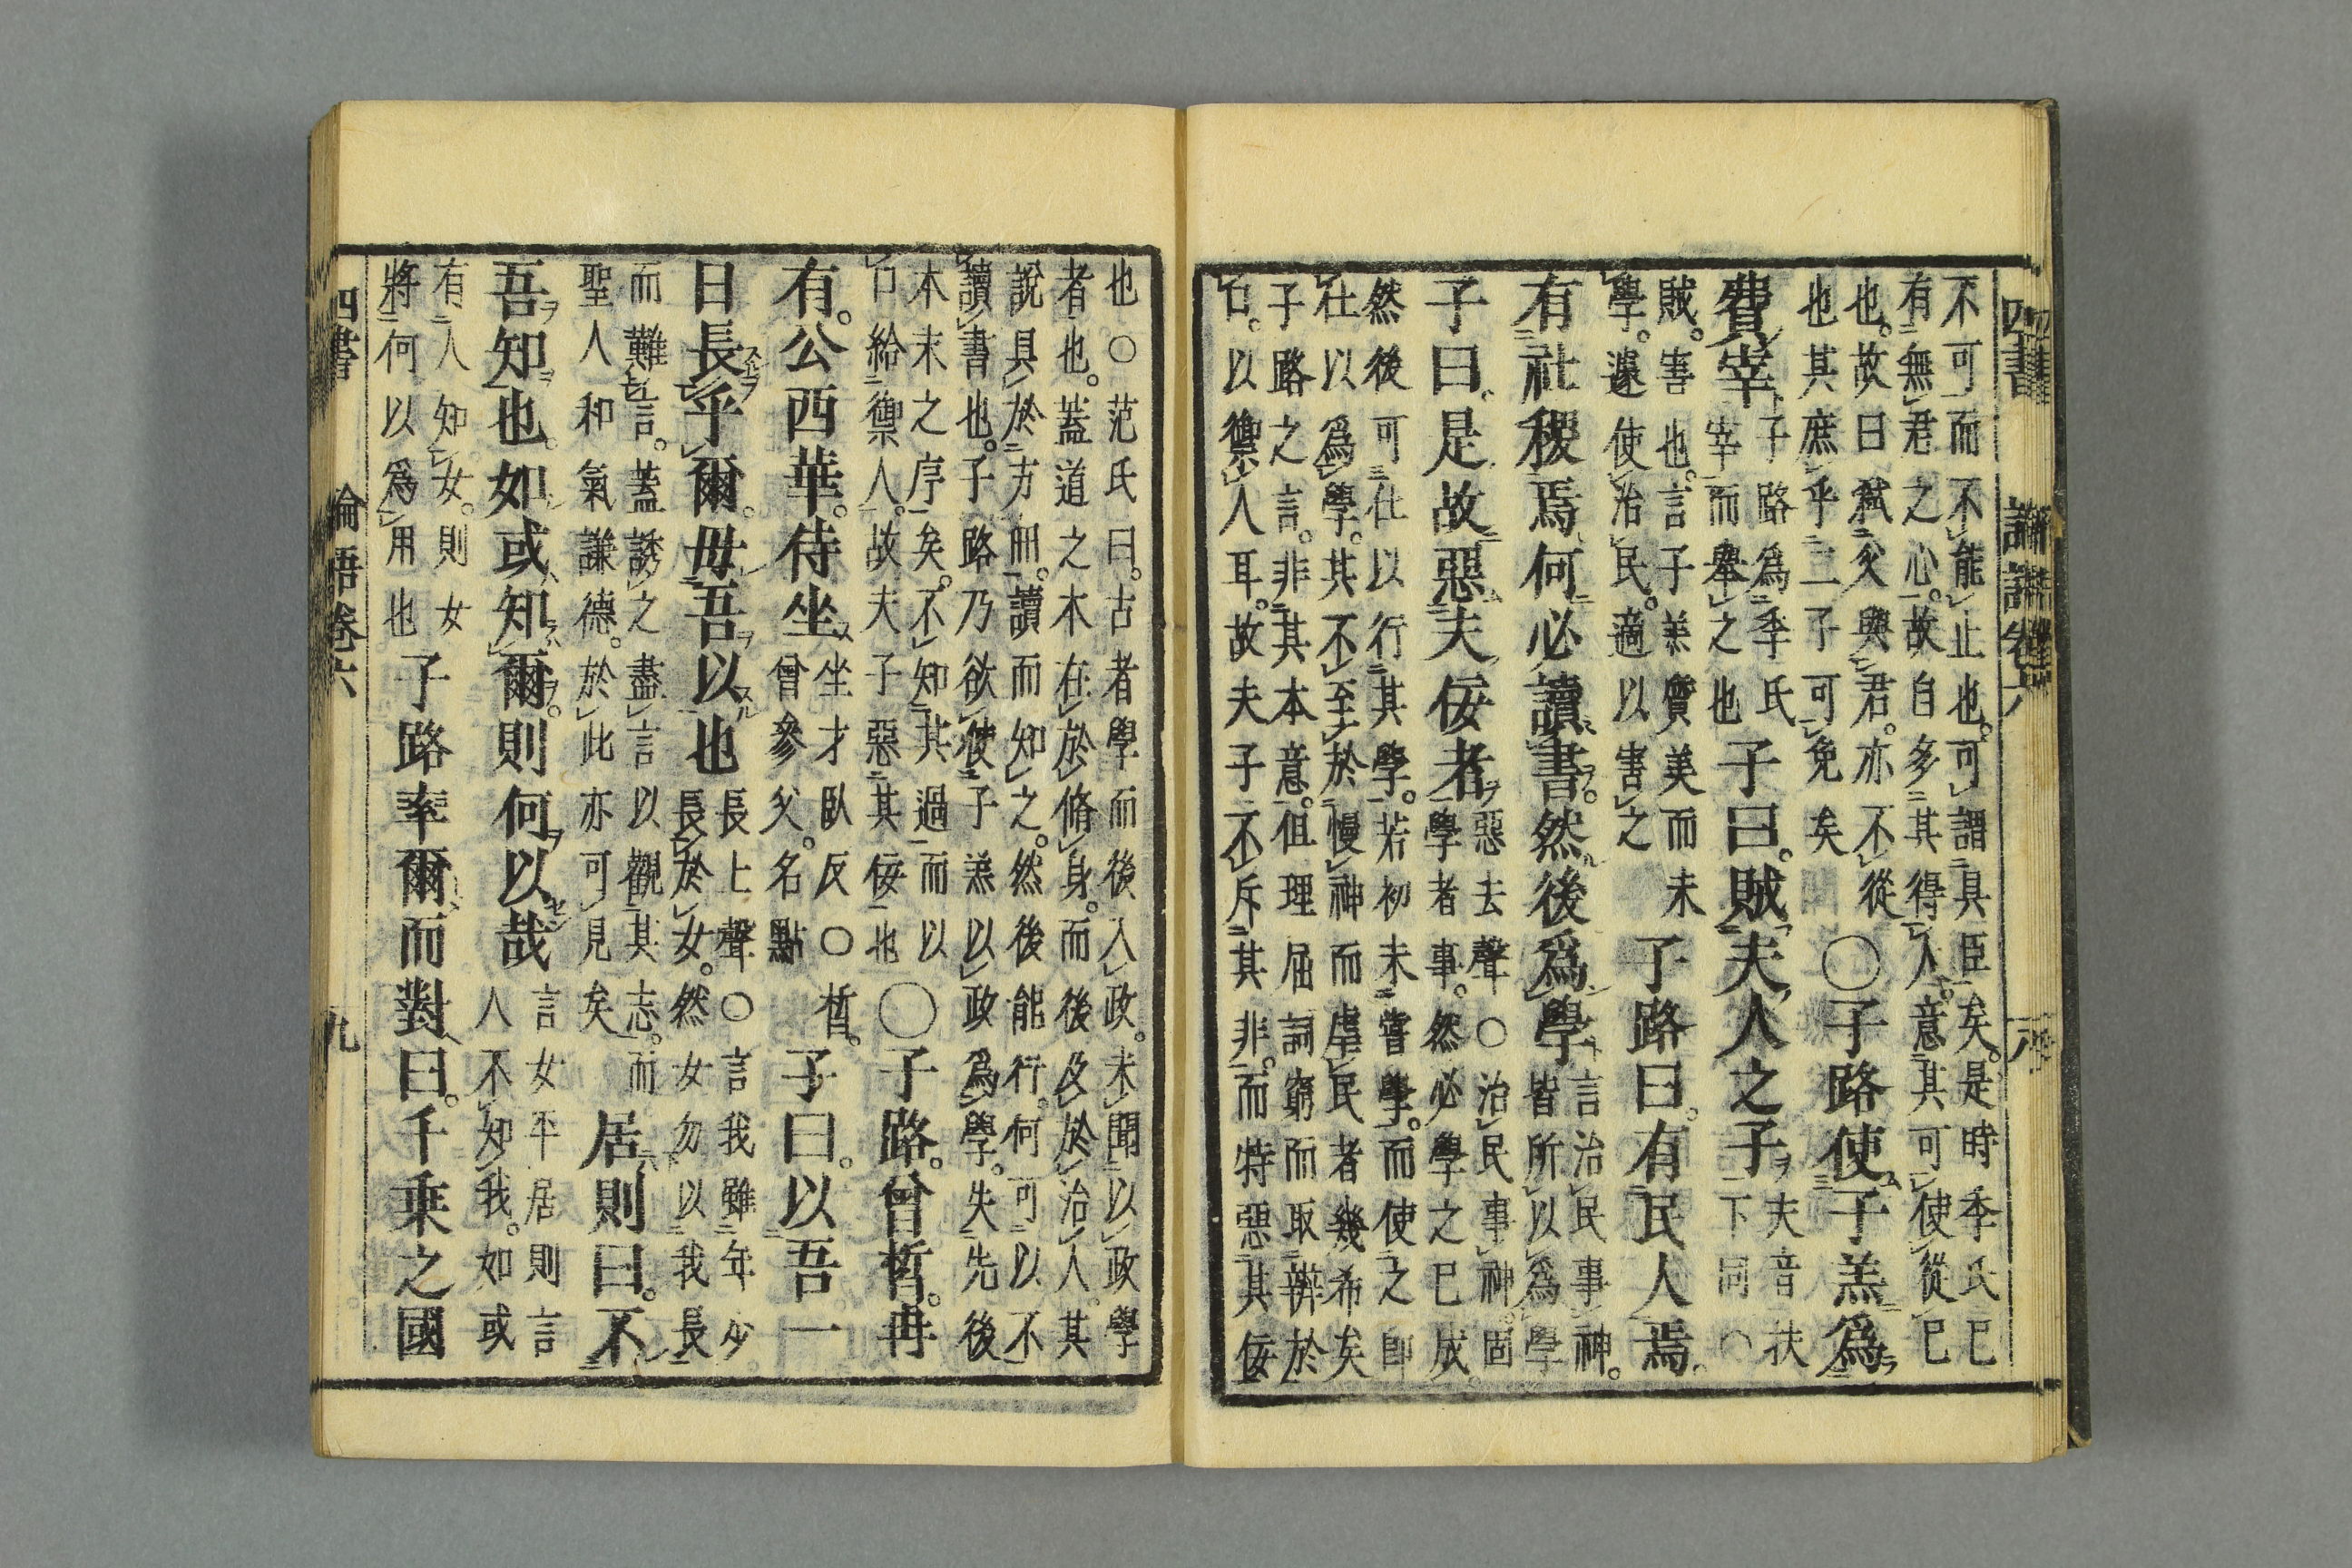 四書 論語卷六 八
不可而不能止也。可謂具臣矣。是時季氏已
有無君之心。故自多其得人。意其可使從已
也。故曰弒父與君。亦不從
也其庶乎二子可免矣
○子路使子羔爲
費宰
子路爲季氏
宰而舉之也
子曰。賊夫人之子
夫音扶
下同○
賊。害也。言子羔質美而未
學。遽使治民。適以害之
子路曰。有民人焉
有社稷焉何必讀書。然後爲學
言治民事神。
皆所以爲學
子曰。是故惡夫佞者
惡去聲○治民事神。固
學者事。然必學之已成。
然後可仕以行其學。若初未嘗學。而使之卽
仕以爲學。其不至於慢神而虐民者幾希矣
子路之言。非其本意。但理屈詞窮而取辨於
口。以禦人耳。故夫子不斥其非。而特惡其佞
也○范氏曰。古者學而後入政。未聞以政學
者也。蓋道之本在於脩身。而後及於治人。其
說具於方冊。讀而知之。然後能行。何可以不
讀書也。子路乃欲使子羔以政爲學。失先後
本末之序矣。不知其過而以
口給禦人。故夫子惡其佞也
○子路。曾皙。冉
有。公西華。待坐
坐才臥反○皙。
曾參父。名點
子曰。以吾一
日長乎爾。毋吾以也
長上聲○言我雖年少
長於女。然女勿以我長
而難言。蓋誘之盡言以觀其志。而
聖人和氣謙德。於此亦可見矣
居則曰。不
吾知也。如或知爾。則何以哉
言女平居則言
人不知我。如或
有人知女。則女
將何以爲用也
子路率爾而對曰。千乘之國
四書 論語卷六 九